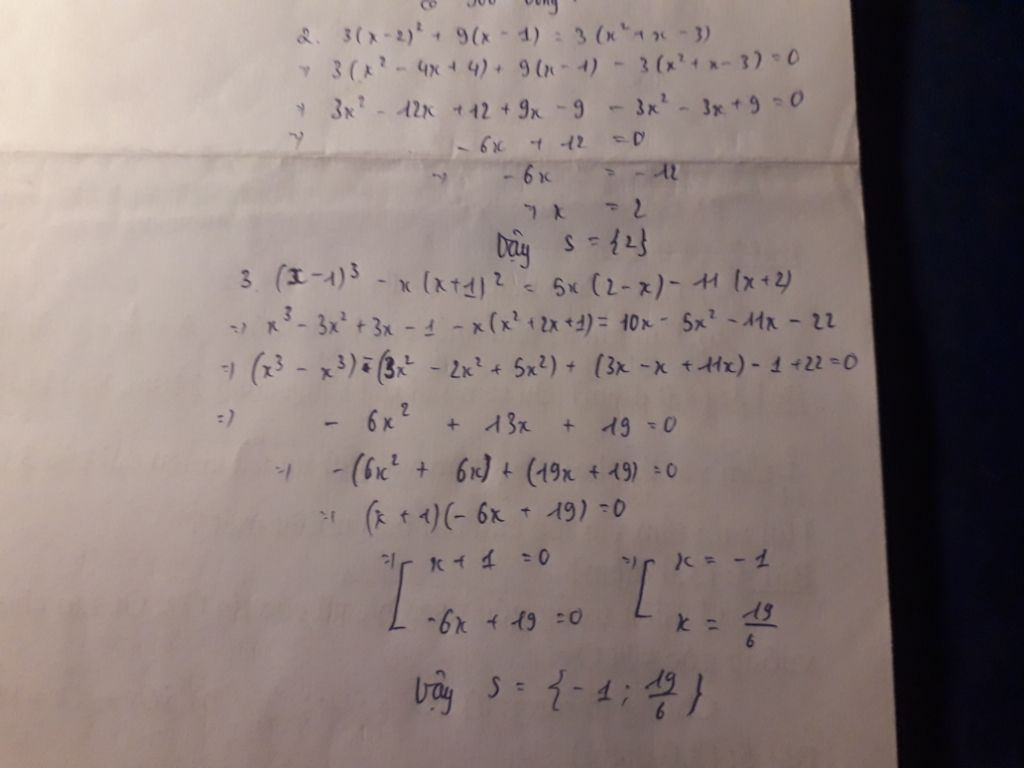 2. 3(x-2)² + 9(x - 1) = 3(x² + x - 3)
=> 3(x² - 4x + 4) + 9(x - 1) - 3(x² + x - 3) = 0
=> 3x² - 12x + 12 + 9x - 9 - 3x² - 3x + 9 = 0
=> - 6x + 12 = 0
=> - 6x = - 12
=> x = 2
Vậy S = {2}
3. (x - 1)³ - x(x+1)² = 5x(2-x) - 11(x+2)
=> x³ - 3x² + 3x - 1 - x(x² + 2x + 1) = 10x - 5x² - 11x - 22
=> (x³ - x³) - (3x² - 2x² + 5x²) + (3x - x + 11x) - 1 + 22 = 0
=> - 6x² + 13x + 19 = 0
=> -(6x² + 6x) + (19x + 19) = 0
=> (x + 1)(-6x + 19) = 0
=> [ x + 1 = 0 => [ x = - 1
-6x + 19 = 0 x = 19/6
Vậy S = {-1; 19/6}